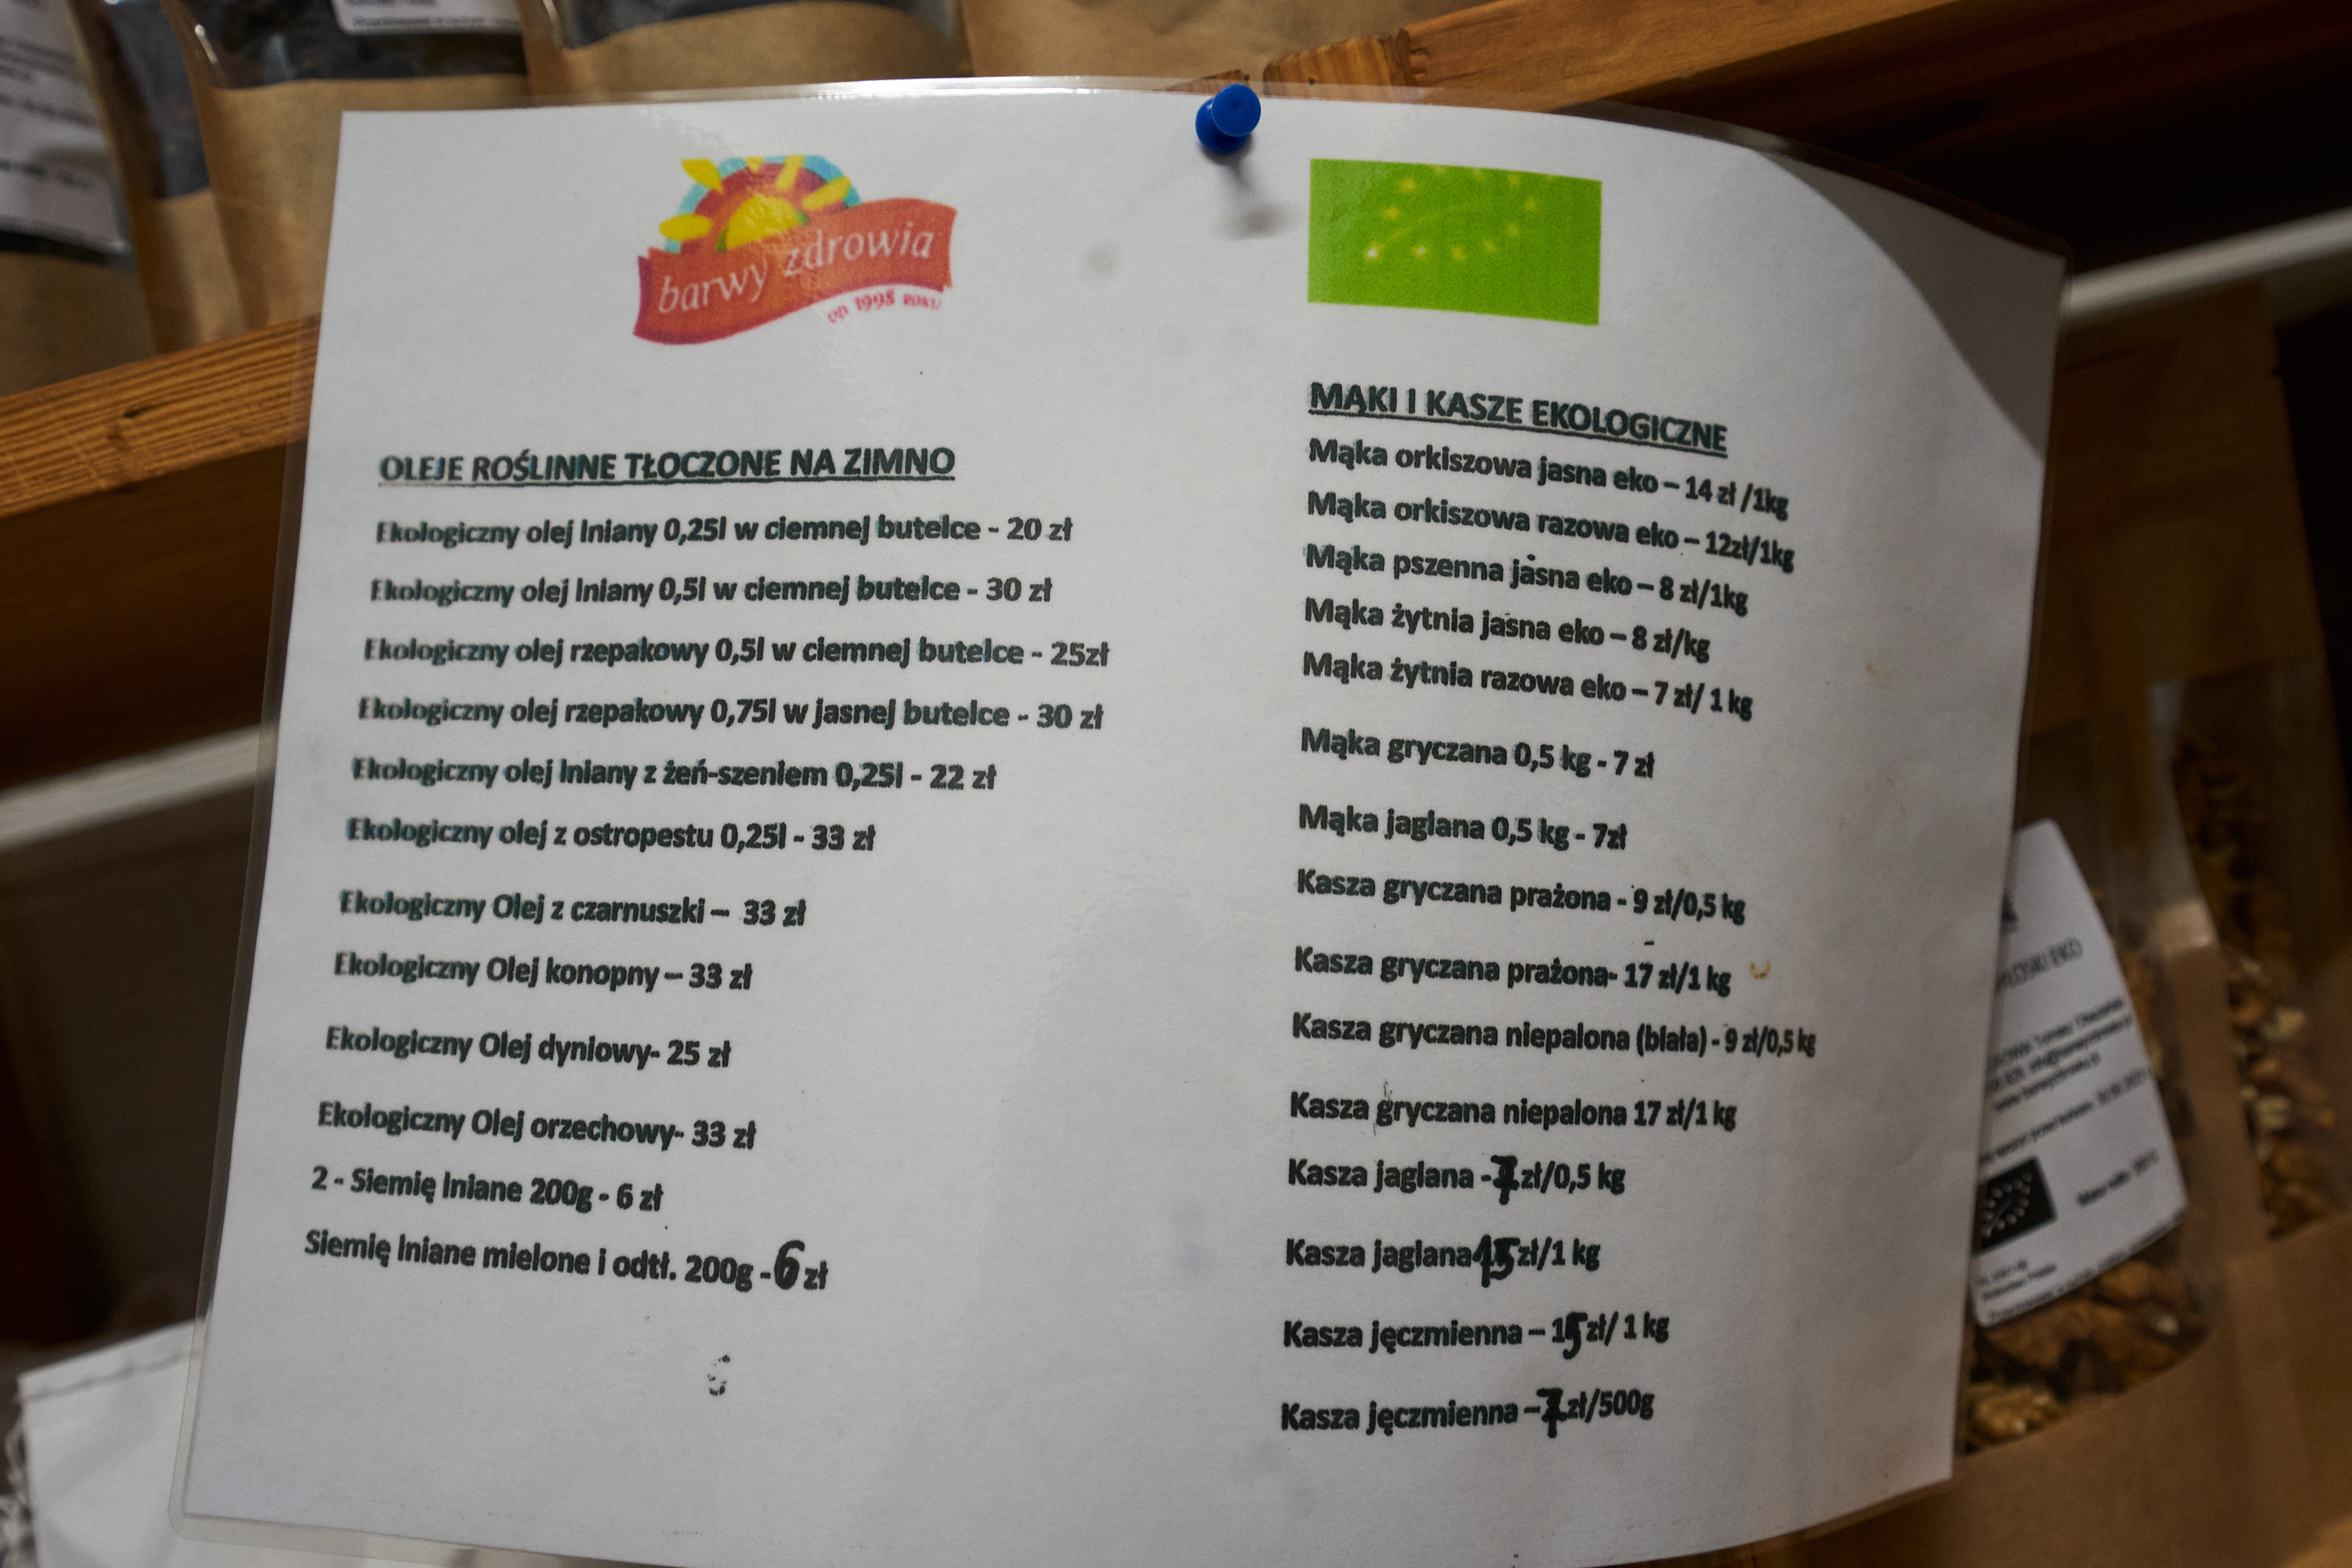 barwy zdrowia
OD 1998 ROKU
OLEJE ROŚLINNE TŁOCZONE NA ZIMNO
Ekologiczny olej lniany 0,25l w ciemnej butelce - 20 zł
Ekologiczny olej lniany 0,5l w ciemnej butelce - 30 zł
Ekologiczny olej rzepakowy 0,5l w ciemnej butelce - 25zł
Ekologiczny olej rzepakowy 0,75l w jasnej butelce - 30 zł
Ekologiczny olej lniany z żeń-szeniem 0,25l - 22 zł
Ekologiczny olej z ostropestu 0,25l - 33 zł
Ekologiczny Olej z czarnuszki – 33 zł
Ekologiczny Olej konopny – 33 zł
Ekologiczny Olej dyniowy- 25 zł
Ekologiczny Olej orzechowy- 33 zł
2 - Siemię lniane 200g - 6 zł
Siemię lniane mielone i odtł. 200g - 6 zł
MĄKI I KASZE EKOLOGICZNE
Mąka orkiszowa jasna eko – 14 zł /1kg
Mąka orkiszowa razowa eko – 12zł/1kg
Mąka pszenna jasna eko – 8 zł/1kg
Mąka żytnia jasna eko – 8 zł/kg
Mąka żytnia razowa eko – 7 zł/ 1 kg
Mąka gryczana 0,5 kg - 7 zł
Mąka jaglana 0,5 kg - 7zł
Kasza gryczana prażona - 9 zł/0,5 kg
Kasza gryczana prażona- 17 zł/1 kg
Kasza gryczana niepalona (biała) - 9 zł/0,5 kg
Kasza gryczana niepalona 17 zł/1 kg
Kasza jaglana -7 zł/0,5 kg
Kasza jaglana 15 zł/1 kg
Kasza jęczmienna – 15 zł/ 1 kg
Kasza jęczmienna –7 zł/500g
EKO